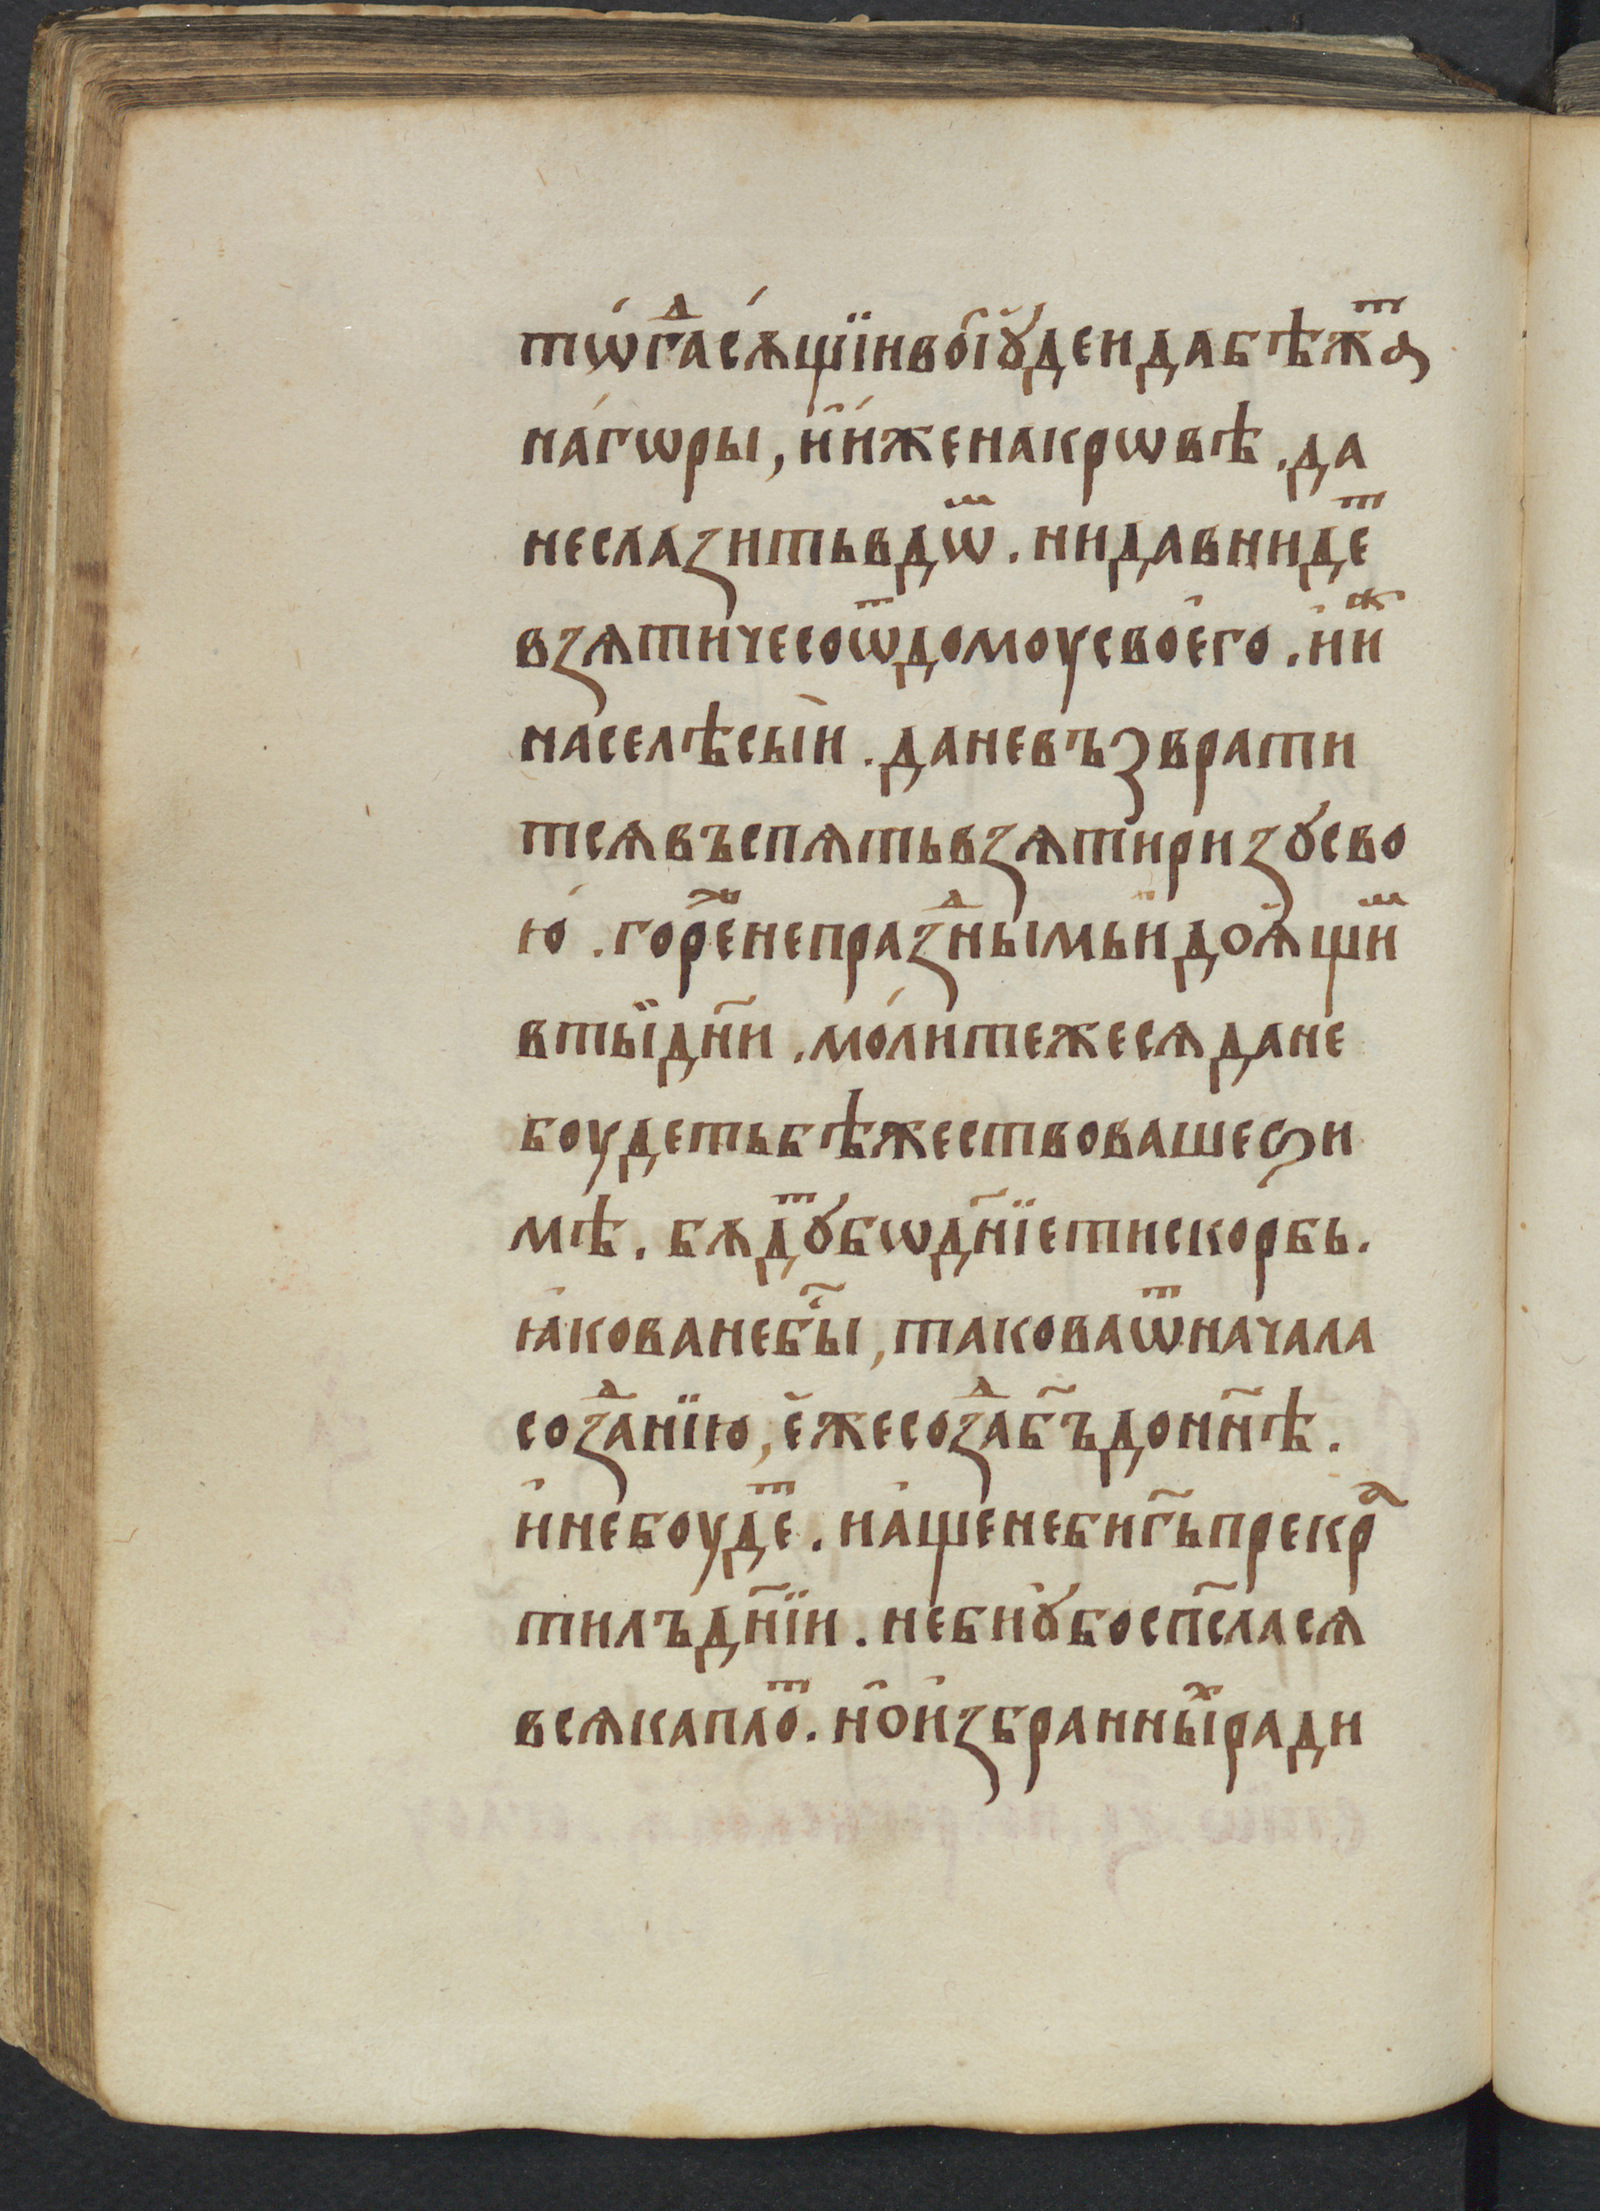 тѡ́гⷣасѧ́щїивоіꙋ́деидабѣжⷮа
на́гѡры, и҆и́женакрѡвѣ . да
неслаꙁитьвдѡⷨ . нидавнидеⷮ
вꙁѧтичесоѿдомоусвоего . и҆иⷤ
населѣсыи . даневъзврати
тсѧвъспѧтьвꙁѧтириꙁꙋсво
ю . гореⷤнепраꙁⷣнымьи҆доѧщиⷨ
втыїдн҃и . мо́литежесѧдане
боудетьбѣжествовашеѕи
мѣ . бѧдꙋⷮбѡдн҃їетискорбь .
ꙗ҆кованебы҃, таковаѿначала
соꙁⷣанїю, е҆жесоꙁⷣаб҃ъдонн҃ѣ .
и҆небоудеⷮ . и҆а҆щенебиг҃ьпрекрⷶ
тилъдн҃їи . небиꙋбосп҃сласѧ
всѧкаплоⷮ . но҆и҆ꙁбранныⷯради